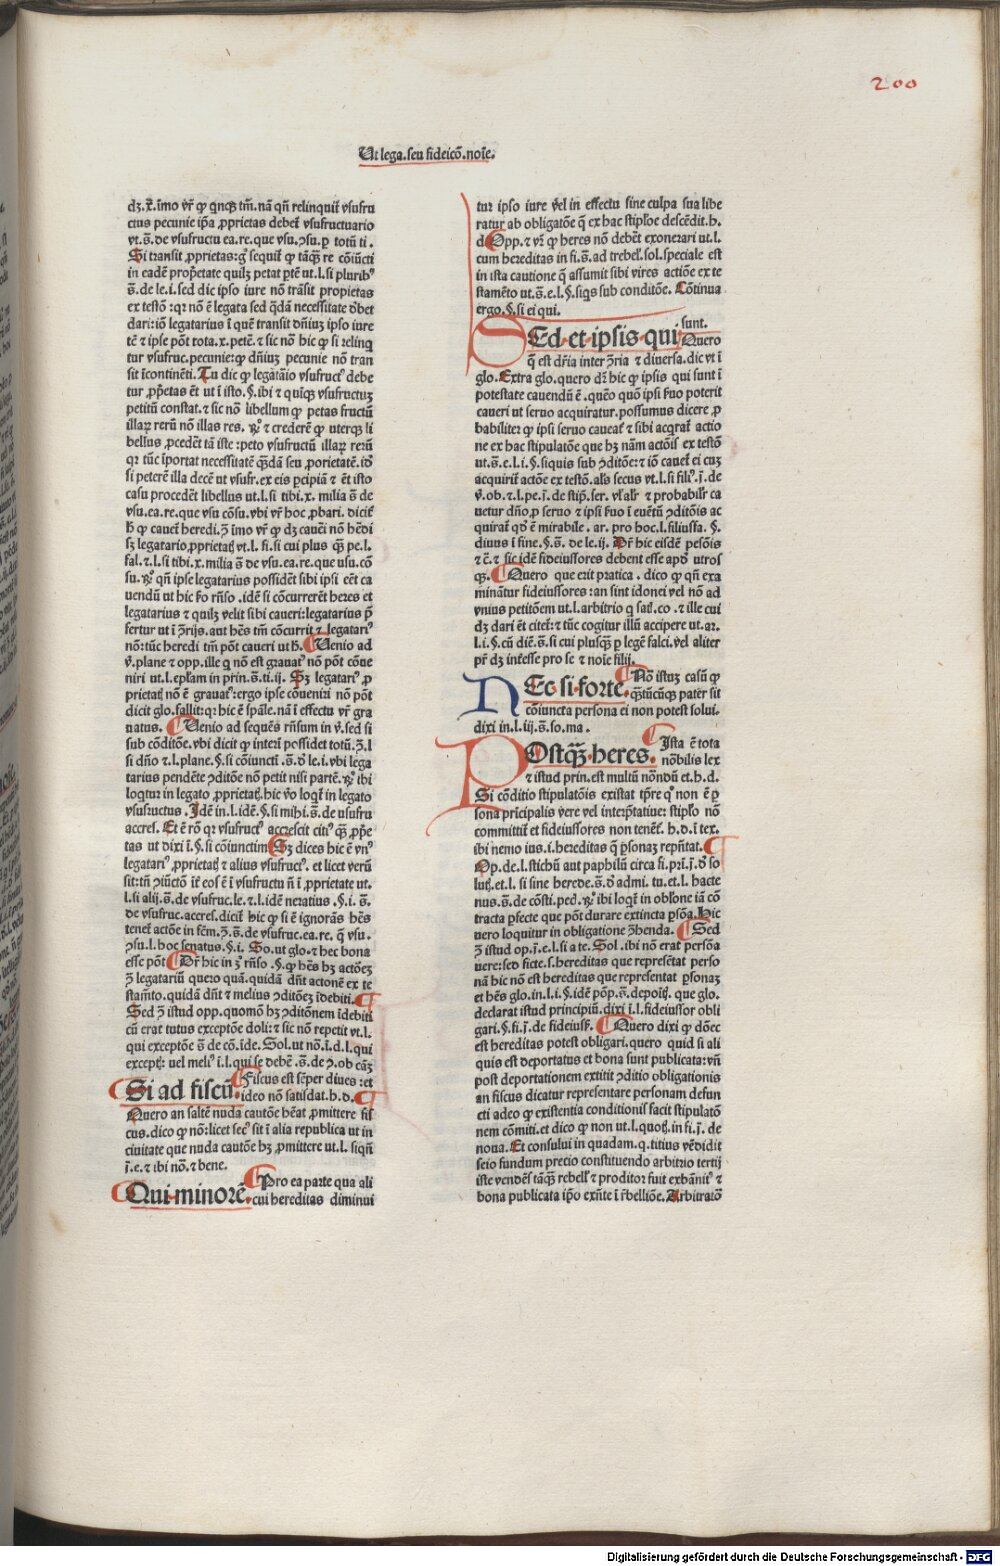 200
Ut lega.seu fideicō.noīe.
dꝫ.ꝶ.imo vr̄ ꝙ qn̄qꝫ tm̄.nā qn̄ relinquit̄ vsufru
ctus pecunie ip̄a ꝓprietas debet̄ vsufructuario
vt.s̄.de vsufructu ea.re.que vsu.ꝯsu.p totū ti.
Si transit ꝓprietas:gͦ sequit̄ ꝙ tāqꝫ re cōiūcti
in eadē prop̄etate quilꝫ petat ptē ut.l.si pluribꝰ
s̄.de le.i.sed dic ipso iure nō trāsit propietas
ex testō:qꝛ nō ē legata sed qd̄ā necessitate dꝫbet
dari:iō legatarius ī quē transit dn̄iuꝫ ipso iure
tē ⁊ ipse pōt rota.x.petē.⁊ sic nō hic ꝙ si relinq̄
tur vsufruc.pecunie:ꝙ dn̄iuꝫ pecunie nō tran
sit īcontinēti.Tu dic ꝙ legatāio vsufructꝰ debe
tur ꝓp̄etas ēt ut ī isto.§.ibi ⁊ quīqꝫ vsufructuꝫ
petitū constat.⁊ sic nō libellum ꝙ petas fructū
illaꝝ rerū nō illas res. ⁊ crederē ꝙ uterqꝫ li
bellus ꝓcedēt tā iste:peto vsufructū illaꝝ rerū
qꝛ tūc īportat necessitatē qd̄da seu ꝓorietatē.id̄
si peterē illa decē ut vsufr.ex eis ꝑcipiā ⁊ ēt isto
casu procedēt libellus ut.l.si tibi.x.milia s̄ de
vsu.ea.re.que vsu cōsu.vbi vr̄ hoc ꝓbari.dicit̄
h̄ ꝙ cauet̄ heredi.ꝫ̄ imo vr̄ ꝙ dꝫ cauēi nō hēdi
sꝫ legatario ꝓprietatꝭ vt.l. fi.si cui plus qꝫ̄ pe.l.
fal.⁊.l.si tibi.x.milia s̄ de vsu.ea.re.que usu.cō
su. qn̄ ipse legatarius possidēt sibi ipsi eēt ca
uendū ut hic rn̄so.idē si cōcurrerēt heres et
legatarius ⁊ quilꝫ velit sibi caueri:legatarius p̄
fertur ut ī ꝫ̄rijs.aut hēs tm̄ cōcurrit ⁊ legatariꝰ
nō:tūc heredi tm̄ pōt caueri ut h̄. Uenio ad
v̄.plane ⁊ opp.ille q̄ nō est grauatꝰ nō pōt cōue
niri ut.l.eplam in prin.s̄.ti.ij. Sꝫ legatariꝰ ꝓ
prietatꝭ nō ē grauatꝰ:ergo ipse cōueniri nō pōt
dicit glo.fallit:qꝛ hic ē spāle.nā ī effectu vr̄ gra
uatus. Uenio ad sequēs rn̄sum in v̄.sed si
sub cōditōe.vbi dicit ꝙ interī possidet totū.ꝫ̄.l
si dn̄o ⁊.l.plane.§.si cōiuncti .s̄.ð le.i.vbi lega
tarius pendēte ꝯditōe nō petit nisi partē. ibi
loqtur in legato ꝓprietatꝭ.hic v̄o loqt̄ in legato
vsufructus .Idē in.l.idē.§.si mihi.s̄.de usufru
accres. Et ē rō qꝛ vsufructꝰ accrescit citiꝰ qꝫ̄ ꝓp̄e
tas ut dixi ī.§.si cōiunctim Sꝫ dices hic ē vnꝰ
legatariꝰ ꝓprietatꝭ ⁊ alius vsufructꝰ. et licet verū
sit:tn̄ ꝯiūctō it̄ eos ē ī vsufructu n̄ ī ꝓprietate ut.
l.si alij.s̄.de vsufruc.le.⁊.l.idē neratius .§.i. s̄.
de vsufruc.accrel.dicit̄ hic ꝙ si ē ignorās hēs
tenet̄ actōe in fēm.ꝫ̄.s̄.de vsufruc.ea.re. q̄ vsu.
ꝯsu.l.hoc senatus.§.i. So.ut glo.⁊ hec bona
esse pōt Dr̄ hic in ꝫ̄ rn̄so .§.ꝙ hēs hꝫ actōeꝫ
ꝫ̄ legatariū quero quā.quidā dn̄t actonē ex te
stam̄to.quidā dn̄t ⁊ melius ꝯditōeꝫ īdebiti.
Sed ꝫ̄ istud opp.quomō hꝫ ꝯditōnem īdebiti
cū erat tutus exceptōe doli:⁊ sic nō repetit vt.l.
qui exceptōe s̄ de cō.īde.Sol.ut nō.i.d.l.qui
exceptꝭ: uel meliꝰ i.l.qui se debē .s̄.de ꝯ.ob caꝫ̄
Si ad fiscū. Fiscus est sēper diues:et
ideo nō satisdat.h.d.
Quero an saltē nuda cautōe bēat ꝓmittere fis
cus.dico ꝙ nō:licet secꝰ sit ī alia republica ut in
ciuitate que nuda cautōe hꝫ ꝓmittere ut.l. siqn̄
j̄.e.⁊ ibi nō.⁊ bene.
Qui minorē. Pro ea parte qua ali
cui hereditas diminui
tur ipso iure vel in effectu sine culpa sua libe
ratur ab obligatōe q̄ ex hac stipl'oe descēdit.h.
d Opp.⁊ vr̄ ꝙ heres nō debēt exonerari ut.l.
cum hereditas in fi.s̄.ad trebel̄.sol.speciale est
in ista cautione q̄ assumit sibi vires actiōe ex te
stamēto ut.s̄.e.l.§.siqs sub conditōe. Cōtinua
ergo.§.si ei qui.
SEd et ipsis qui sunt.
Quero
q̄ est dr̄ia inter ꝫ̄ria ⁊ diuersa.dic vt ī
glo.Extra glo.quero dr̄ hic ꝙ ipsis qui sunt ī
potestate cauendū ē .quēo quō ipsi uo poterit
caueri ut seruo acquiratur.possumus dicere ꝓ
babiliter ꝙ ipsi seruo caueat̄ ⁊ sibi acqrat̄ actio
ne ex hac stipulatōe que hꝫ nām actōis ex testō
ut.s̄.e.l.i.§.siquis sub ꝯditōe:⁊ iō cauet̄ ei cuꝫ
acquirit̄ actōe ex testō.als̄ secus vt.l.si filiꝰ.j̄.de
v̄.ob.⁊.l.pe.j̄.de stip̄.ser. vl̄ alr̄ ⁊ probabilr̄ ca
vetur dn̄o ꝓ seruo ⁊ ipsi uo ī euētū ꝯditōis ac
quirat̄ qd̄ ē mirabile. ar. pro hoc.l.filiusfa. §.
diuus ī fine.§.s̄. de le.ij. Dr̄ hic eisdē ꝑsōis
⁊ c̄.⁊ sic idē fideiussores debent esse apd̄ utros
qꝫ. Quero que erit pratica . dico ꝙ qn̄ exa
mināt̄ur fideiussores:an sint idonei vel nō ad
vnius petitōem ut.l.arbitrio q̄ sat̄.co .⁊ ille cui
dꝫ dari ēt citet̄:⁊ tūc cogitur illū accipere ut.ar.
l.i.§.cū diē.s̄.si cui plusqꝫ ꝑ legē falci.vel aliter
pr̄ dꝫ int̄esse pro se ⁊ noīe filij.
NEc si forte. Nō istuꝫ casū ꝙ
qꝫ̄tūcūqꝫ pater sit
cōiuncta persona ei non potest solui.
dixi in.l.iij.s̄.so.ma.
POstqꝫ̄ heres. Ista ē tota
nōbilis lex
⁊ istud prin.est multū nōndū et.h.d.
Si cōditio stipulatōis existat tꝑre q̄ non ē ꝑ
sona pricipalis vere vel interp̄tatiue: stipl'o nō
committit̄ et fideiussores non tenēt̄. h.d.ī tex.
ibi nemo ius.i.hereditas q̄ ꝑsonaꝫ repn̄tat.
Op.de.l.stichū aut paphilū circa fi.pri.j̄.ð so
lutꝭ.et.l. si sine herede.s̄.ð admi. tu.et.l. hacte
nus.s̄.de cōsti.ped. ibi loqt̄ in obl'one iā cō
tracta ꝑfecte que pōt durare extincta ꝑsōa.Hic
uero loquitur in obligatione ꝯ̄hꝫenda. Sed
ꝫ̄ istud op.j̄.e.l.si a te.Sol.ibi nō erat persōa
vere:sed ficte.s.hereditas que represētat perso
nā hic nō est hereditas que representat ꝑsonaꝫ
et hēs glo.in.l.i.§.idē pōp.s̄.depoitꝭ.que glo.
declarat istud principiū.dixi ī.l.fideiussor obli
gari.§.fi.j̄.de fideiuss̄. Quero dixi ꝙ dōec
est hereditas potest obligari.quero quid si ali
quis est deportatus et bona sunt publicata:vn̄
post deportationem extitit ꝯditio obligationis
an fiscus dicatur representare personam defun
cti adeo ꝙ existentia conditionis facit stipulatō
nem cōmiti.et dico ꝙ non ut.l.quotꝭ.in fi.j̄. de
noua. Et consului in quadam.q.titius vēdidit
seio fundum precio constituendo arbitrio tertij
iste vendēs tāqꝫ̄ rebel̄s ⁊ proditor fuit exbānitꝰ ⁊
bona publicata ip̄o exn̄te ī r̄belliōe. Arbitraīō
Digitalisierung gefördert durch die Deutsche Forschungsgemeinschaft - DFG